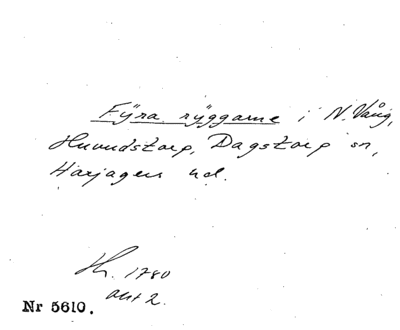 Fÿra rÿggarne i N. Vång,
Huvudstorp, Dagstorp sn,
Harjagers hd.
H. 1780
akt 2.
Nr 5610.